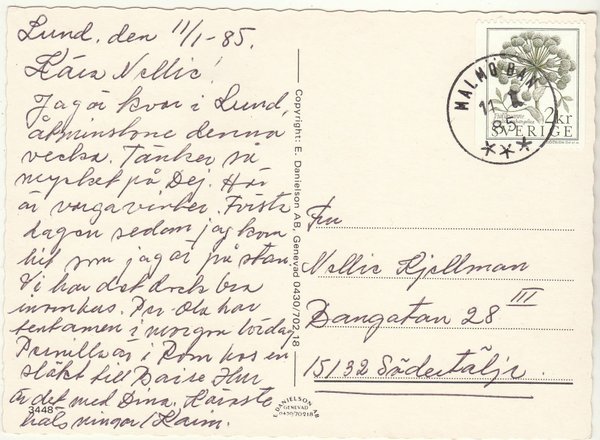 Lund, den 11/1-85.
Kära Nellie!
Jag är kvar i Lund,
åtminstone denna
vecka. Tänker så
mycket på Dej. Här
är vargavinter. Första
dagen sedan jag kom
hit som jag är på stan.
Vi har det dock bra
inomhus. Per Ola har
tentamen i morgon lördag
Pernilla är i Rom hos en
släkt till Hur
är det med Dina. Käraste
hälsningar / Karin.
3448
Copyright: E. Danielson AB, Genevad 0430/702 18
E. DANIELSON AB
GENEVAD
0430/70218
MALMÖ BAN
11 1
85
2 kr
SVERIGE
Fru
Nellie Kjellman
Bangatan 28 III
15132 Södertälje